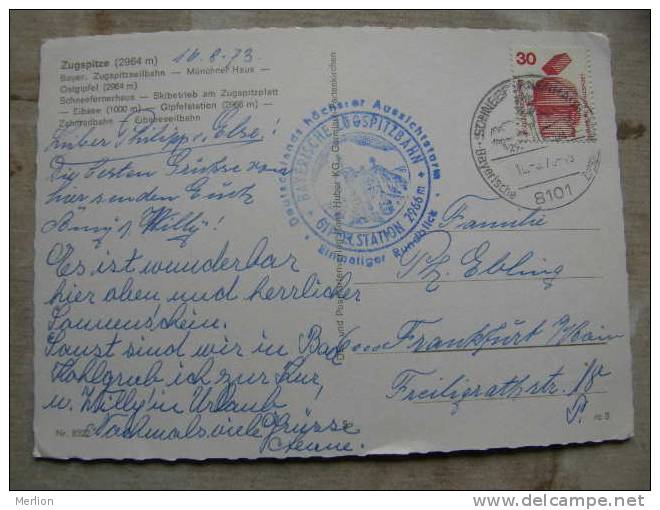 Zugspitze (2964 m) 10.8.73
Bayer. Zugspitzseilbahn — Münchner Haus —
Ostgipfel (2964 m)
Schneefernerhaus — Skibetrieb am Zugspitzplatt
— Eibsee (1000 m) — Gipfelstation (2966 m) —
Zahnradbahn — Eibseeseilbahn
Lieber Philipp u. Else!
Die besten Grüsse von
hier senden Euch
Änny u. Willy!
Es ist wunderbar
hier oben, und herrlicher
Sonnenschein.
Sonst sind wir in Bad
Kohlgrub, ich zur Kur,
u. Willy in Urlaub
Nochmals viele Grüsse
Nr.
Deutschlands höchster Aussichtsturm
BAYERISCHE ZUGSPITZBAHN
GIPFELSTATION 2966 m
Einmaliger Rundblick
30
Bayerische
8101
Familie
Ph. Ebling
Frankfurt/Main
Freiligrathstr.
Merlion www.delcampe.net